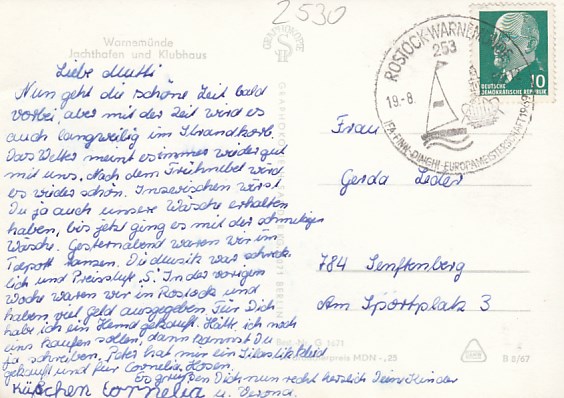 2530
Warnemünde
Jachthafen und Klubhaus
GRAPHOKOPIE
ROSTOCK-WARNEMÜNDE
253
19.-8.
IFA-FINN-DINGHI EUROPAMEISTERSCHAFT 1969
DEUTSCHE
DEMOKRATISCHE REPUBLIK
10
Liebe Mutti
Nun geht die schöne Zeit bald
vorbei, aber mit der Zeit wird es
auch langweilig im Strandkorb.
Das Wetter meint es immer wieder gut
mit uns. Nach dem Frühnebel wird
es wieder schön. Inzwischen wirst
Du ja auch unsere Wäsche erhalten
haben, bis jetzt ging es mit der schmutzigen
Wäsche. Gestern abend waren wir im
Teepott tanzen. Die Musik war schreck
lich und Preisstufe "S". In der vorigen
Woche waren wir in Rostock und
haben viel Geld ausgegeben. Für Dich
habe ich ein Hemd gekauft. Hätte ich noch
eins kaufen sollen, dann kannst Du
ja schreiben. Peter hat mir ein
gekauft und für Cornelia Hosen.
Es grüßen Dich nun recht herzlich Deine Kinder
Küßchen Cornelia u. Verona
Frau
Gerda Leder
784 Senftenberg
Am Sportplatz 3
Best.-Nr. G 1471
MDN -,25
B 8/67